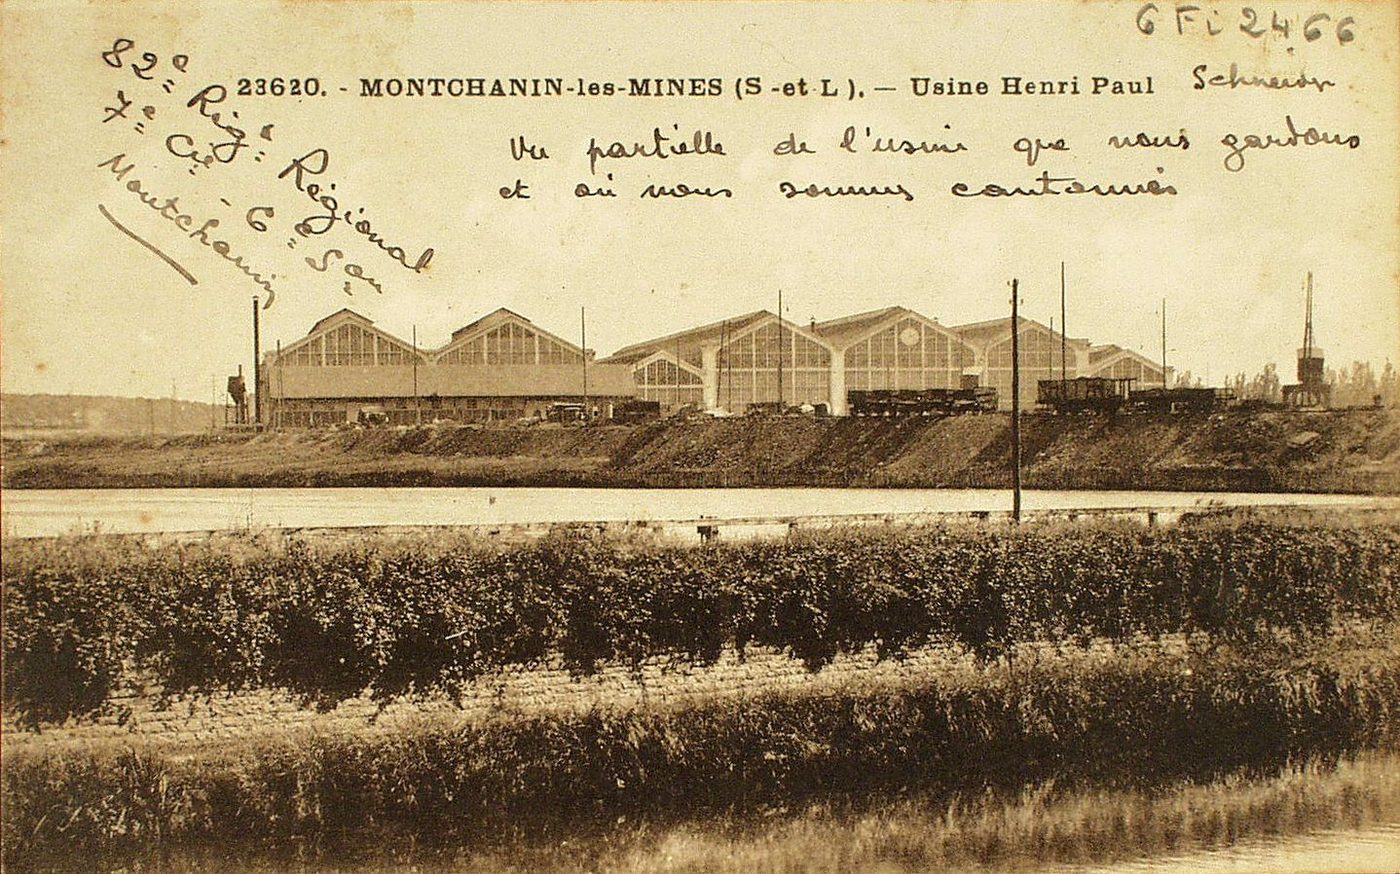 6 Fi 2466
23620. - MONTCHANIN-les-MINES (S-et-L). — Usine Henri Paul Schneider
Vu partielle de l'usine que nous gardons
et où nous sommes cantonnés
82e Rége Régional
7e Cie - 6e Son
Montchanin